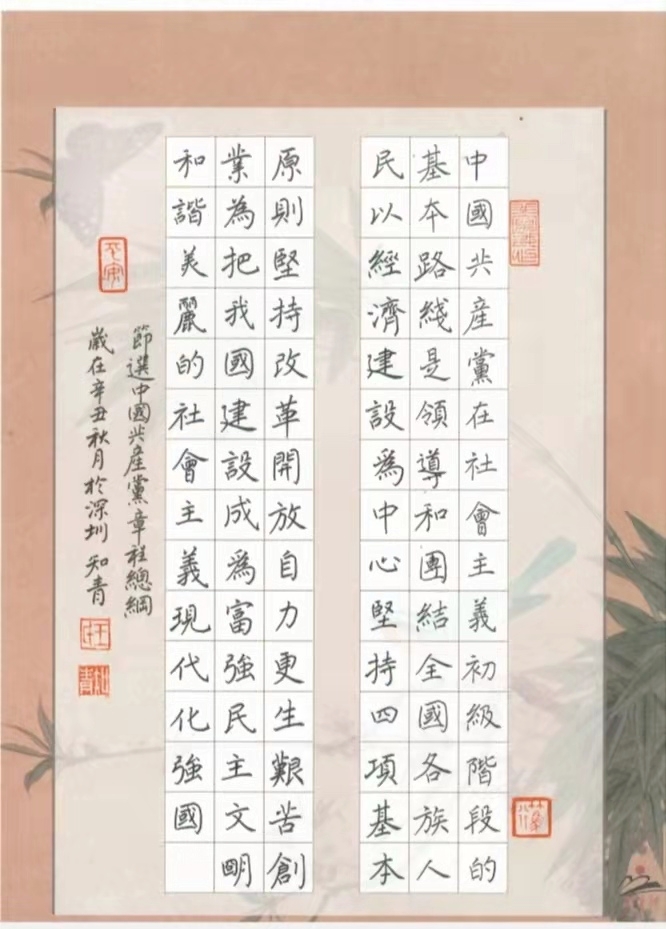 中國共産黨在社會主義初級階段的
基本路綫是領導和團結全國各族人
民以經濟建設爲中心堅持四項基本
原則堅持改革開放自力更生艱苦創
業為把我國建設成爲富強民主文明
和諧美麗的社會主義現代化強國
節選中國共産黨章程總綱
歲在辛丑秋月於深圳 知青
平安